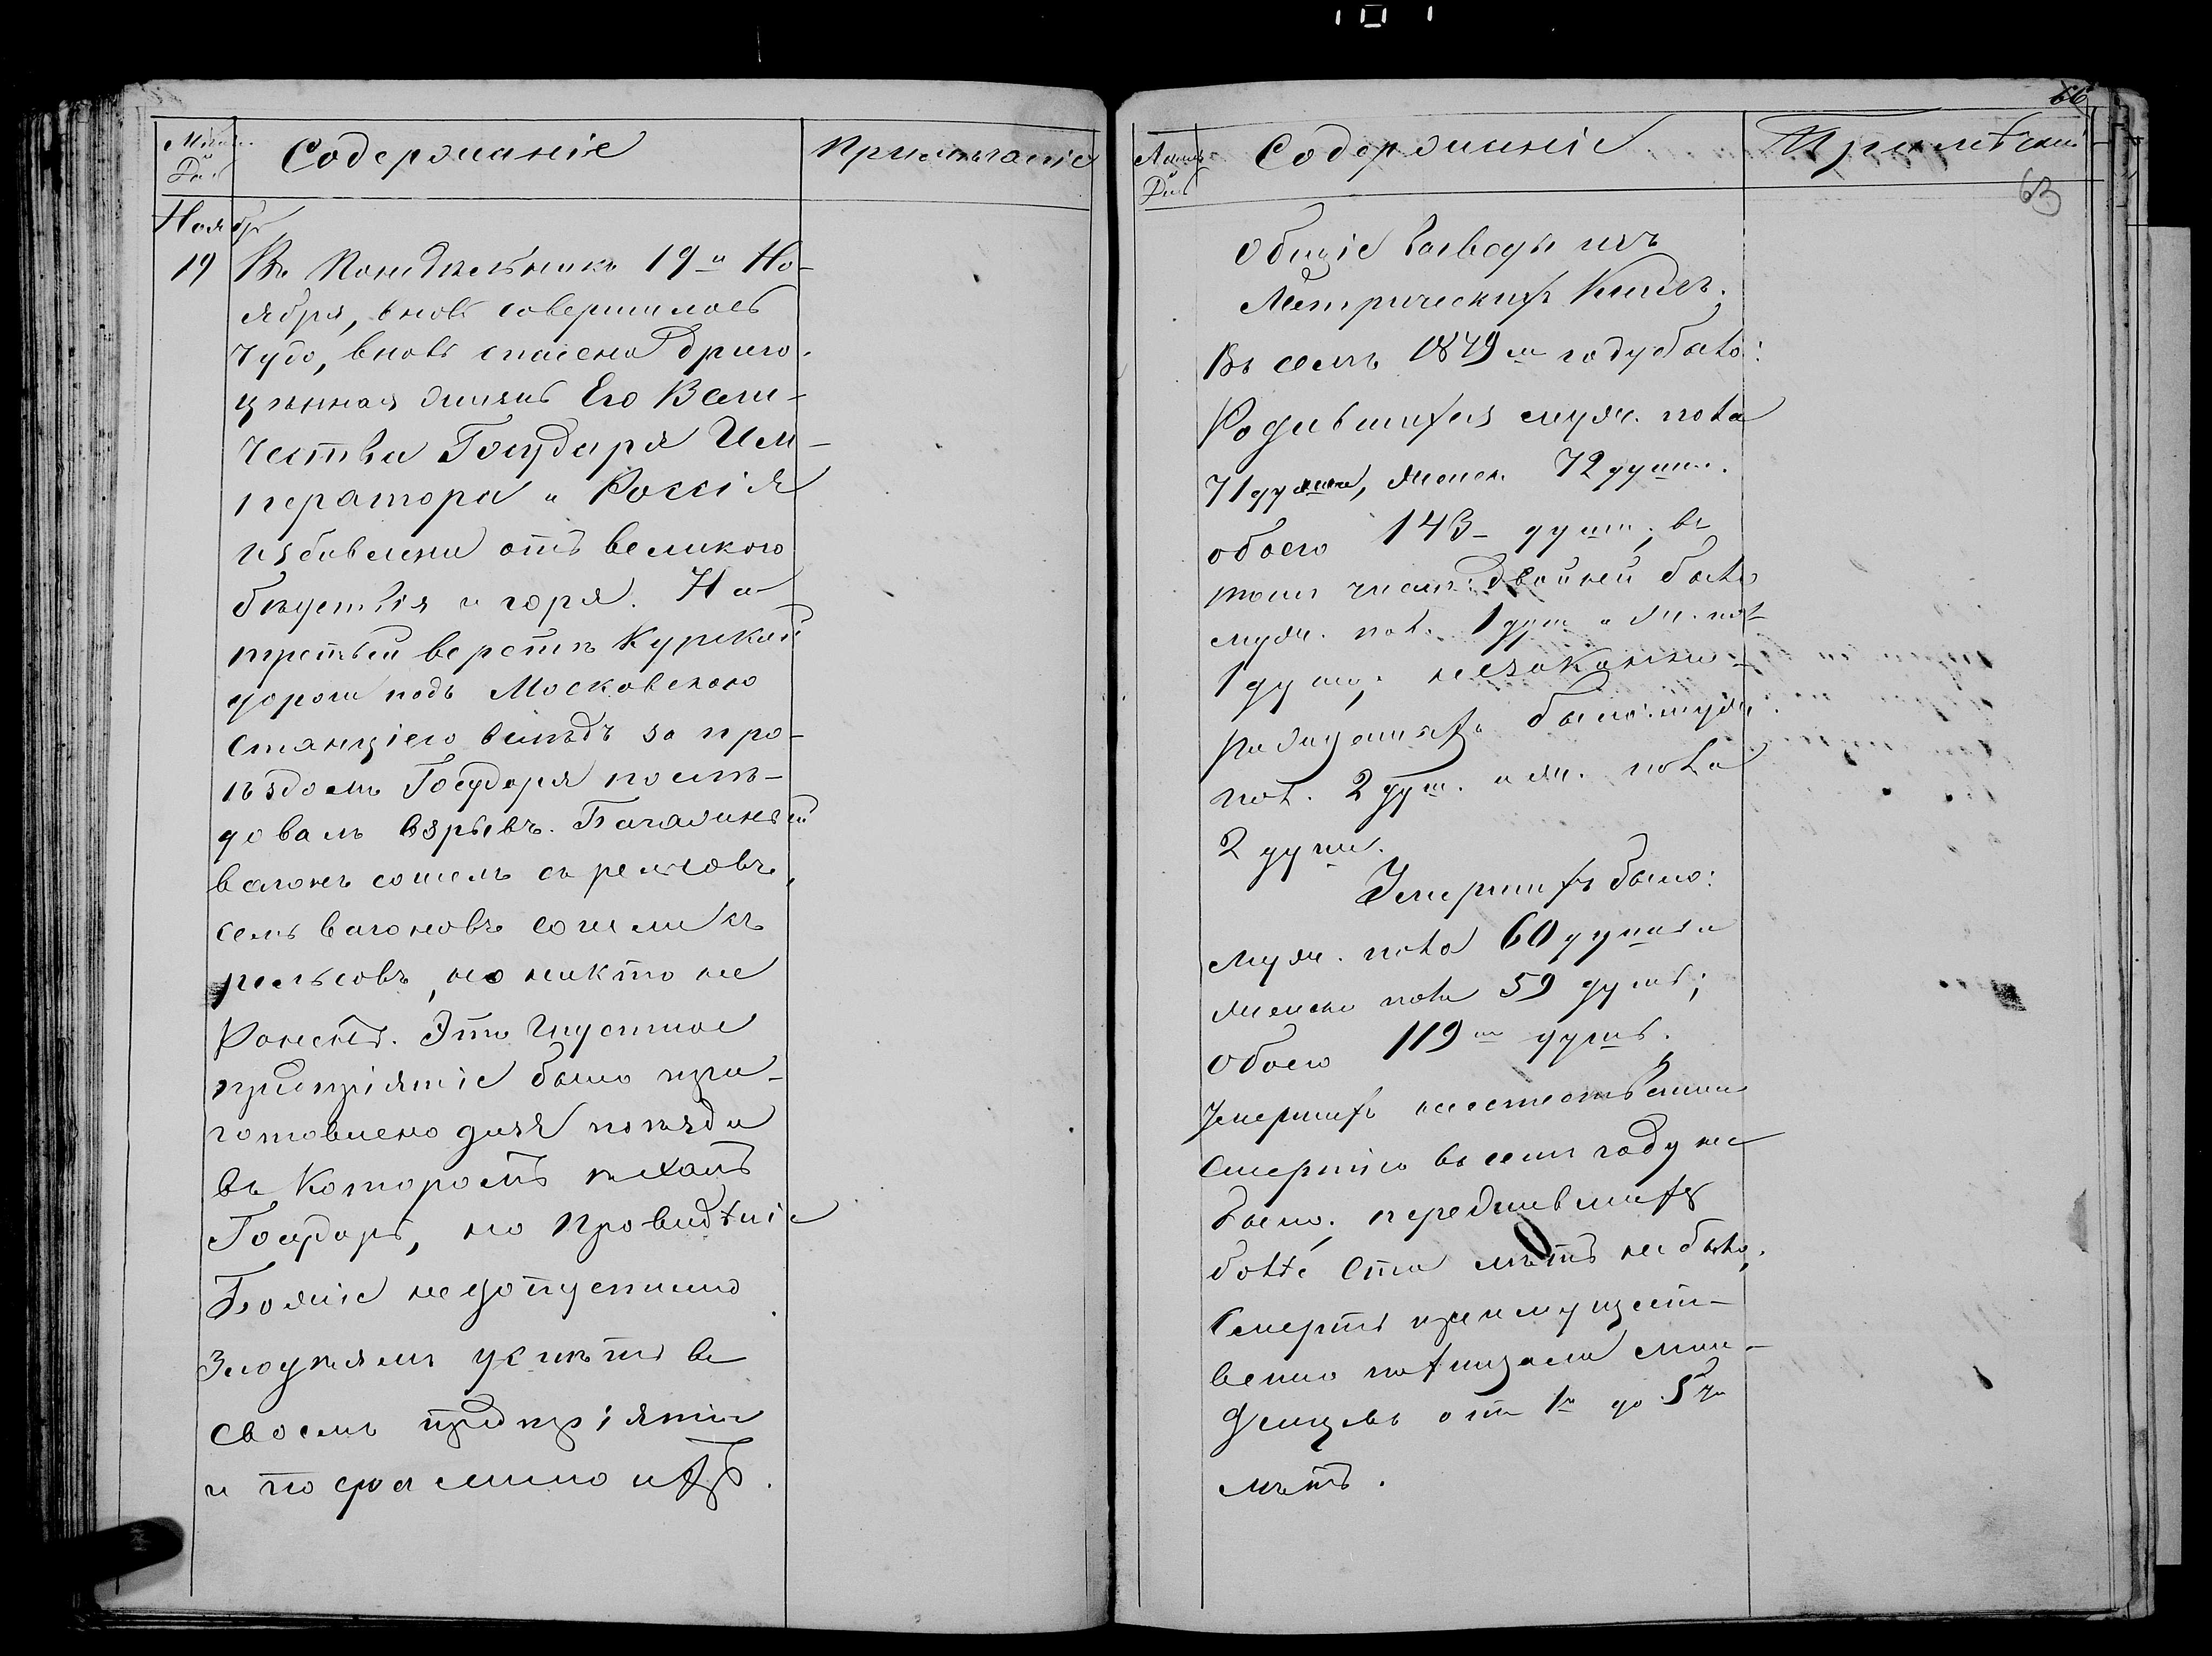 Содержаніе
Примѣчаніе
Ноябр
19 Въ Понедѣльникъ 19го Но-
ября, вновь совершилось
Чудо, вновь спасена драго-
цѣнная жизнь Его Вели-
чества Государя Им-
ператора и Россія
избавлена отъ великого
бѣдствія и горя. На
третьей верстѣ Курской
дороги подъ Московскою
станціею вслѣдъ за про-
ѣздомъ Государя послѣ-
довалъ взрывъ. Багажный
вагонъ сошелъ съ рельсовъ,
семь вагоновъ сошли съ
рельсовъ, но никто не
Раненъ. Это Гнустное
предпріятіе было при-
готовлено для поѣзда
въ Которомъ ѣхалъ
Государь, но Провидѣніе
Божіе не допустило
Злодѣямъ успѣть въ
своемъ предпріятіи
и посрамило ихъ.
66
63
Мѣсяцъ и День
Содержаніе
Примѣчаніе
Общіе выводы изъ
Метрическихъ Книгъ.
Въ семъ 1879м году было:
Родившихся муж. пола
71 душа, женск. 72 души.
обоего 143 душ; въ
томъ числѣ: двойней было
муж. пол. 1 душ и ж. пол
1 душ; незаконно-
рождённыхъ было: муж.
пол. 2 душ. и ж. пола
2 души.
Умершихъ было:
муж. пола 60 душъ и
женск пола 59 душъ;
Обоего 119 душъ.
Умершихъ неестественною
Смертію въ семъ году не
было; пережившихъ
болѣе Ста лѣтъ не было.
Смерть преимущест-
венно похищала мла-
денцевъ отъ 1го до 5ти
лѣтъ.